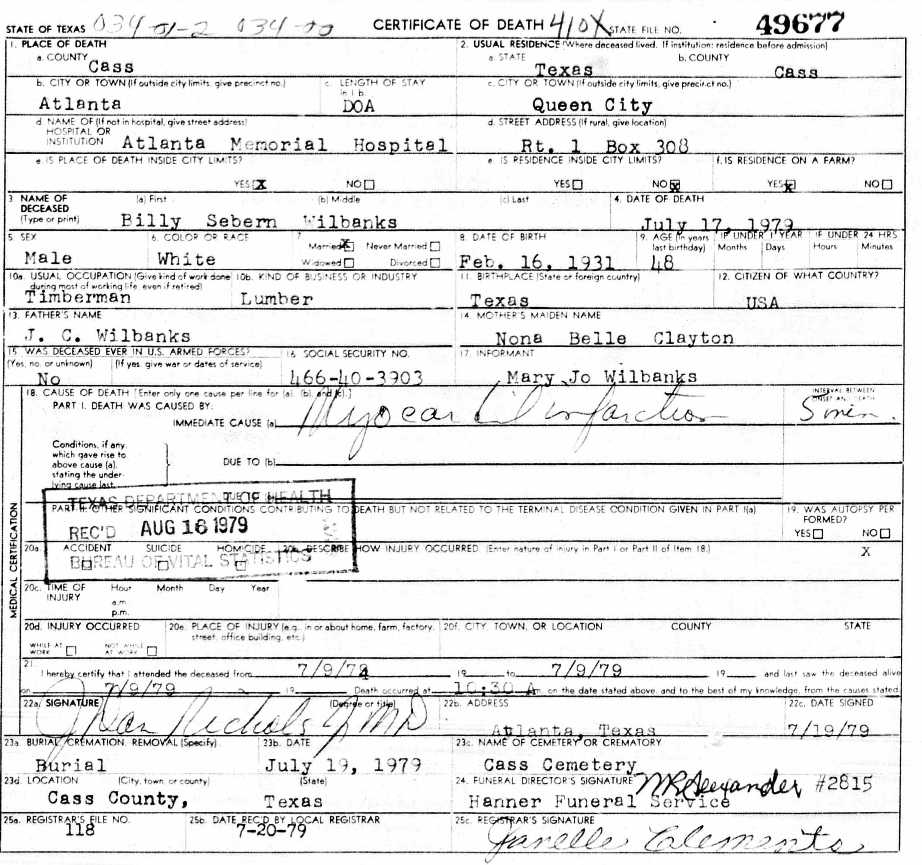 STATE OF TEXAS 034-01-2 034-00 CERTIFICATE OF DEATH 410X STATE FILE NO. 49677
1. PLACE OF DEATH 2. USUAL RESIDENCE (Where deceased lived. If institution: residence before admission)
a. COUNTY Cass a. STATE Texas b. COUNTY Cass
b. CITY OR TOWN (If outside city limits, give precinct no.) c. LENGTH OF STAY in 1 b. c. CITY OR TOWN (If outside city limits, give precinct no.)
Atlanta DOA Queen City
d. NAME OF (If not in hospital, give street address) HOSPITAL OR INSTITUTION d. STREET ADDRESS (If rural, give location)
Atlanta Memorial Hospital Rt. 1 Box 308
e. IS PLACE OF DEATH INSIDE CITY LIMITS? e. IS RESIDENCE INSIDE CITY LIMITS? f. IS RESIDENCE ON A FARM?
YES X NO YES NO X YES X NO
3. NAME OF DECEASED (Type or print) (a) First (b) Middle (c) Last 4. DATE OF DEATH
Billy Sebern Wilbanks July 17, 1979
5. SEX 6. COLOR OR RACE 7. Married X Never Married Widowed Divorced 8. DATE OF BIRTH 9. AGE (In years last birthday) IF UNDER 1 YEAR Months Days IF UNDER 24 HRS Hours Minutes
Male White Feb. 16, 1931 48
10a. USUAL OCCUPATION (Give kind of work done during most of working life, even if retired) 10b. KIND OF BUSINESS OR INDUSTRY 11. BIRTHPLACE (State or foreign country) 12. CITIZEN OF WHAT COUNTRY?
Timberman Lumber Texas USA
13. FATHER'S NAME 14. MOTHER'S MAIDEN NAME
J. C. Wilbanks Nona Belle Clayton
15. WAS DECEASED EVER IN U.S. ARMED FORCES? 16. SOCIAL SECURITY NO. 17. INFORMANT
(Yes, no, or unknown) (If yes, give war or dates of service)
No 466-40-3903 Mary Jo Wilbanks
MEDICAL CERTIFICATION
18. CAUSE OF DEATH [Enter only one cause per line for (a), (b), and (c).] INTERVAL BETWEEN ONSET AND DEATH
PART I. DEATH WAS CAUSED BY:
IMMEDIATE CAUSE (a) Myocardial infarction 5 min.
Conditions, if any, which gave rise to above cause (a), stating the underlying cause last.
DUE TO (b)
DUE TO (c)
PART II. OTHER SIGNIFICANT CONDITIONS CONTRIBUTING TO DEATH BUT NOT RELATED TO THE TERMINAL DISEASE CONDITION GIVEN IN PART I(a) 19. WAS AUTOPSY PERFORMED?
YES NO X
TEXAS DEPARTMENT OF HEALTH
REC'D AUG 16 1979
BUREAU OF VITAL STATISTICS
20a. ACCIDENT SUICIDE HOMICIDE 20b. DESCRIBE HOW INJURY OCCURRED. (Enter nature of injury in Part I or Part II of Item 18.)
20c. TIME OF INJURY Hour Month Day Year
a.m.
p.m.
20d. INJURY OCCURRED 20e. PLACE OF INJURY (e.g., in or about home, farm, factory, street, office building, etc.) 20f. CITY, TOWN, OR LOCATION COUNTY STATE
WHILE AT WORK NOT WHILE AT WORK
21. I hereby certify that I attended the deceased from 7/9/79 19 to 7/9/79 19 and last saw the deceased alive
on 7/9/79 19 Death occurred at 10:30 A m on the date stated above, and to the best of my knowledge, from the causes stated.
22a. SIGNATURE (Degree or title) 22b. ADDRESS 22c. DATE SIGNED
Nichols Jr MD Atlanta, Texas 7/19/79
23a. BURIAL, CREMATION, REMOVAL (Specify) 23b. DATE 23c. NAME OF CEMETERY OR CREMATORY
Burial July 19, 1979 Cass Cemetery
23d. LOCATION (City, town, or county) (State) 24. FUNERAL DIRECTOR'S SIGNATURE #2815
Cass County, Texas Hanner Funeral Service
25a. REGISTRAR'S FILE NO. 25b. DATE REC'D BY LOCAL REGISTRAR 25c. REGISTRAR'S SIGNATURE
118 7-20-79 Janelle Clements